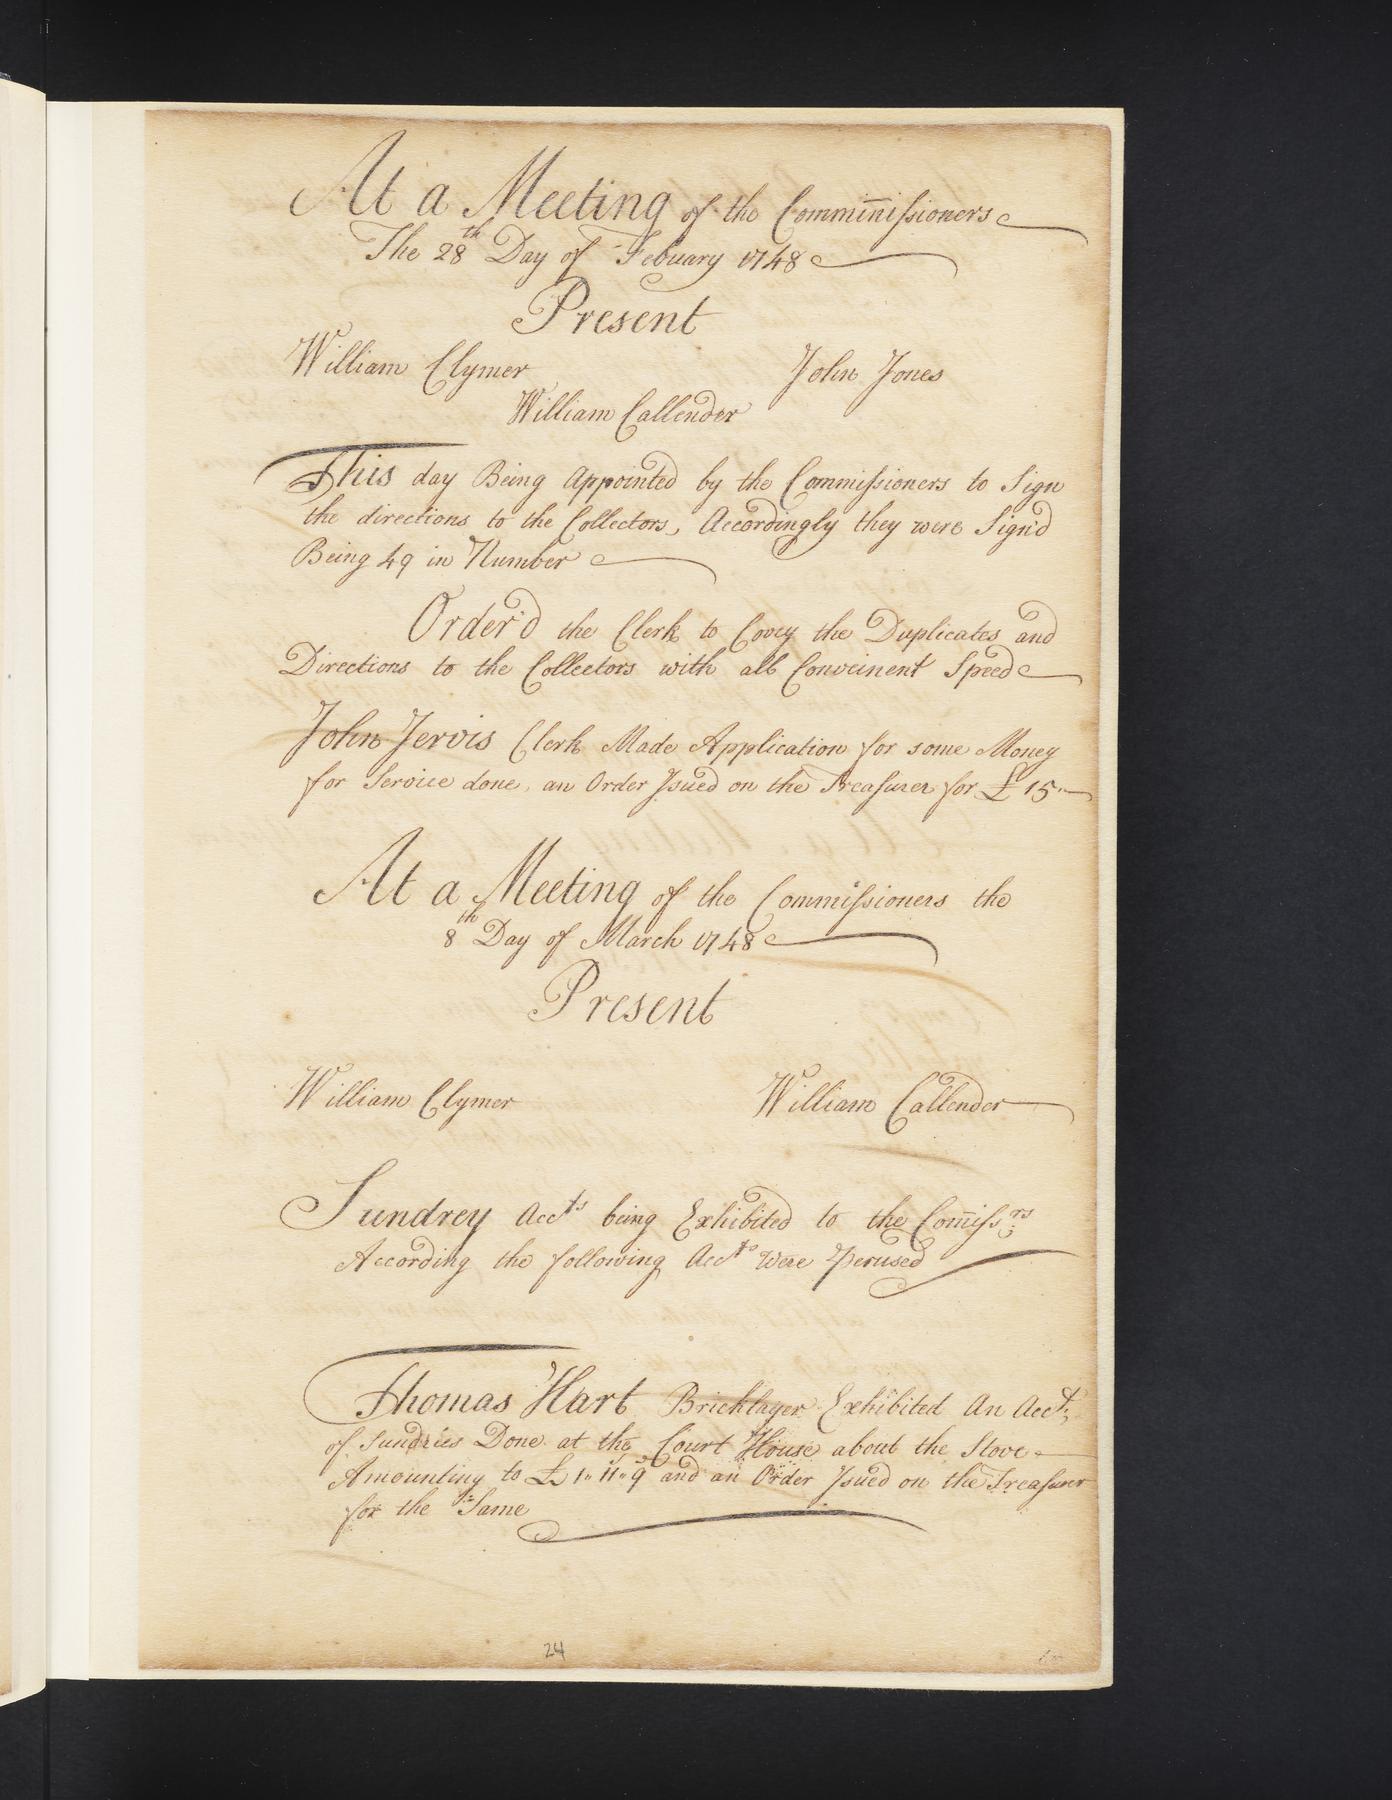 At a Meeting of the Comminissioners
The 28th Day of Febuary 1748
Present
William Clymer John Jones
William Callender
This day Being Appointed by the Commissioners to Sign
the directions to the Collectors, Accordingly they were Sign'd
Being 49 in Number
Order'd the Clerk to Covey the Duplicates and
Directions to the Collectors with all Conveinent Speed
John Jervis Clerk Made Application for some Money
for Service done, an Order Jsued on the Treasurer for £ 15"—
At a Meeting of the Commissioners the
8th Day of March 1748
Present
William Clymer William Callender
Sundrey Accts being Exhibited to the Comissrs
According the following Accts were Perused
Thomas Hart Bricklayer Exhibited An Acct
of Sundries Done at the Court House about the Stove
Amounting to £ 1"11"9 and an Order Jsued on the Treasurer
for the Same
24